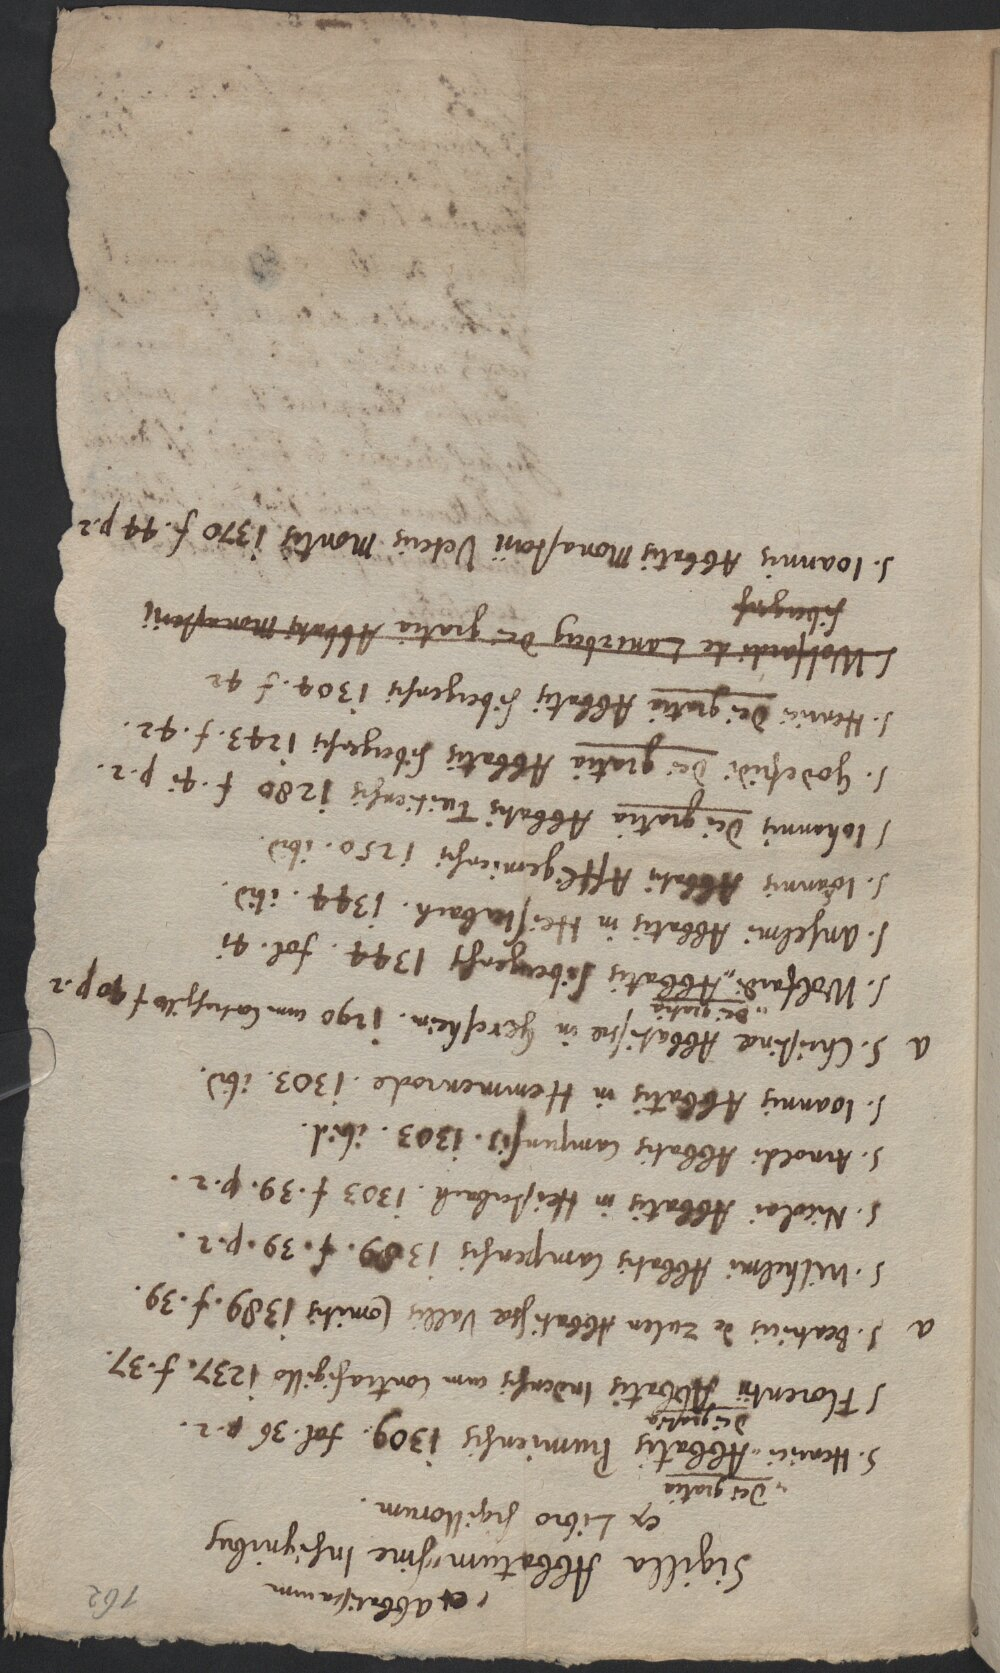 162
et abbatissarum
Sigilla Abbatum sine Insignibus
ex Libro sigillorum.
Dei gratia
S. Henrici Abbatis Prumiensis 1309. fol. 36 p. 2.
Dei gratia
S Florentii Abbatis Indensis cum contrasigillo 1237. f. 37.
a S. Beatricis de Zulen Abbatissæ Vallis Comitis 1389. f. 39.
S. Wilhelmi Abbatis Campensis 1389. f. 39. p. 2.
S. Nicolai Abbatis in Heisterbach. 1303 f. 39. p. 2.
S. Arnoldi Abbatis Campensis. 1303. ibid.
S. Ioannis Abbatis in Hemmenrode. 1303. ibid.
a S. Christinæ Abbatissæ in Gerestein. 1290 cum Contrasigillo f 40 p. 2
Dei gratia
S. Wolfardi Abbatis sibergensis 1344. fol. 41
S. Anselmi Abbatis in Heisterbach. 1344. ibid.
S. Ioannis Abbatis Affligemiensis 1250. ibid.
S Iohannis Dei gratia Abbatis Tuitiensis 1280 f. 41 p. 2.
S. Godefridi Dei gratia Abbatis sibergensis 1243. f. 42.
S. Henrici Dei gratia Abbatis sibergensis 1304. f 42
S. Wolfardi de Lantzberg Dei gratia Abbatis Monasterii
sibergens
S. Ioannis Abbatis Monasterii Veteris Montis 1370 f. 44 p. 2